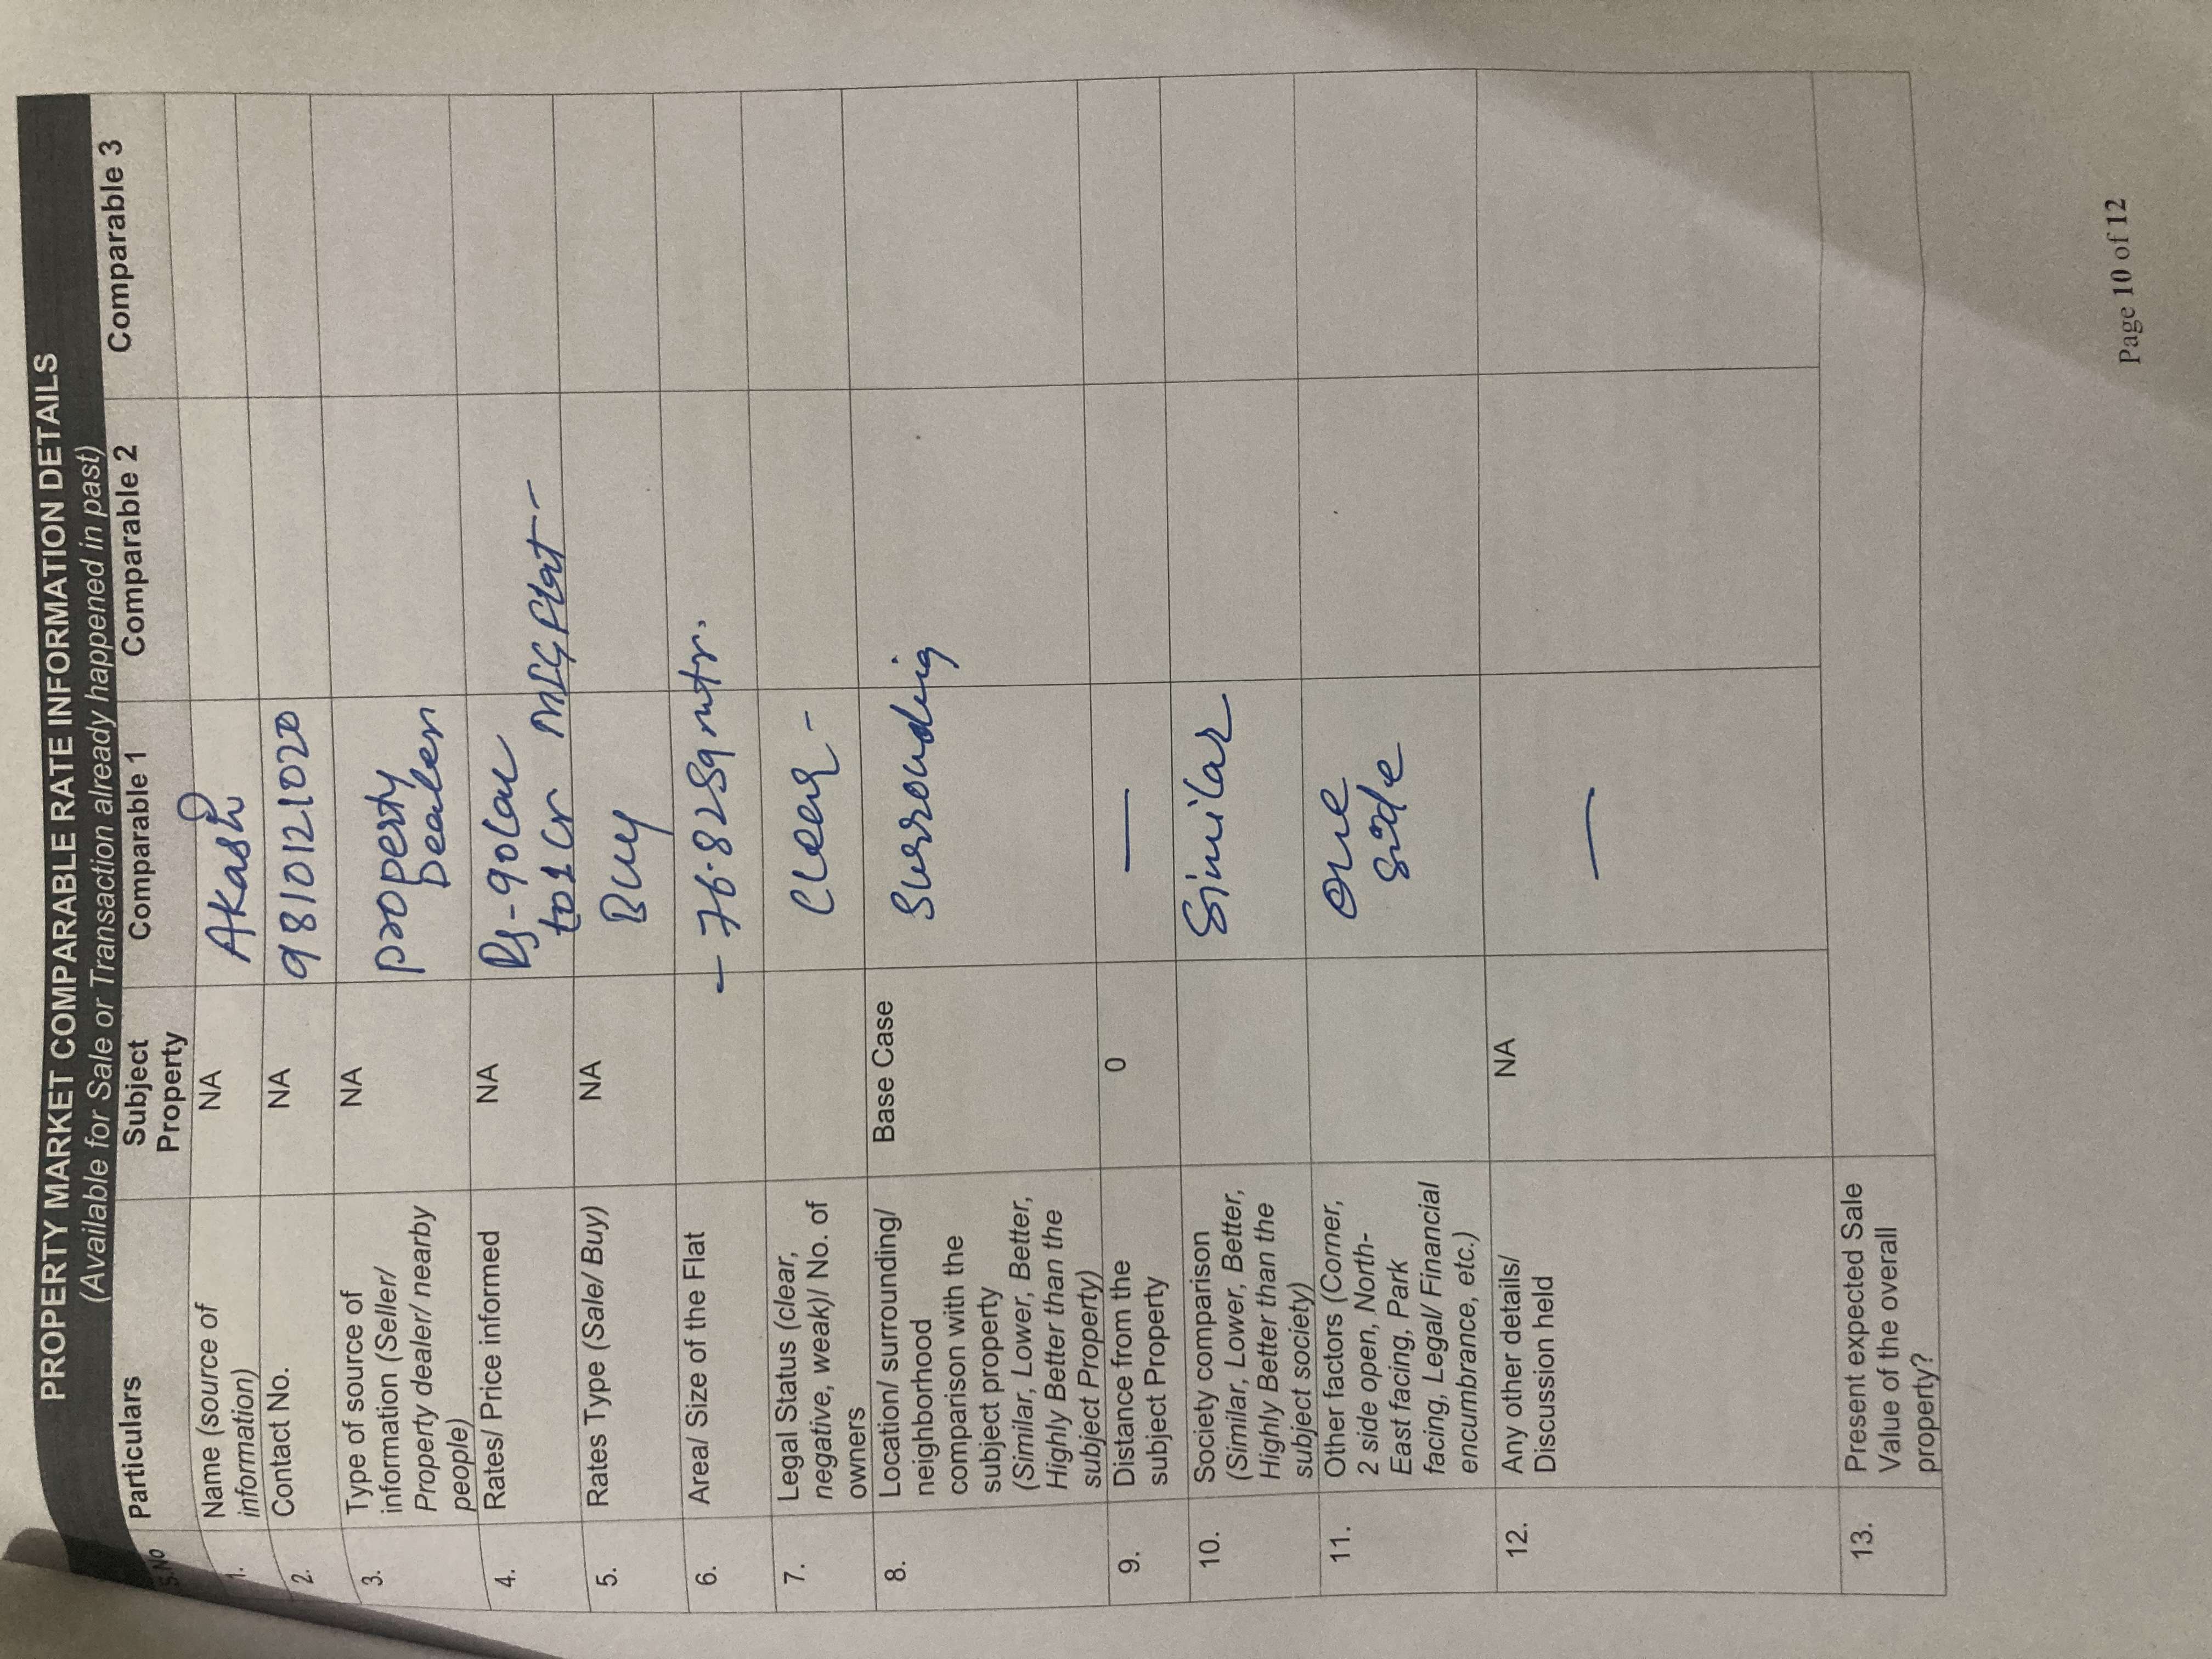 PROPERTY MARKET COMPARABLE RATE INFORMATION DETAILS
(Available for Sale or Transaction already happened in past)
S.No Particulars Subject Property Comparable 1 Comparable 2 Comparable 3
1. Name (source of information) NA Akash
2. Contact No. NA 9810121020
3. Type of source of information (Seller/ Property dealer/ nearby people) NA property Dealer
4. Rates/ Price informed NA Rs-90lac to 1 Cr MIG flat--
5. Rates Type (Sale/ Buy) NA Buy
6. Area/ Size of the Flat - 76.82 Sq mtr.
7. Legal Status (clear, negative, weak)/ No. of owners Clear -
8. Location/ surrounding/ neighborhood comparison with the subject property (Similar, Lower, Better, Highly Better than the subject Property) Base Case Surrounding
9. Distance from the subject Property 0 —
10. Society comparison (Similar, Lower, Better, Highly Better than the subject society) Similar
11. Other factors (Corner, 2 side open, North-East facing, Park facing, Legal/ Financial encumbrance, etc.) One Side
12. Any other details/ Discussion held NA —
13. Present expected Sale Value of the overall property?
Page 10 of 12